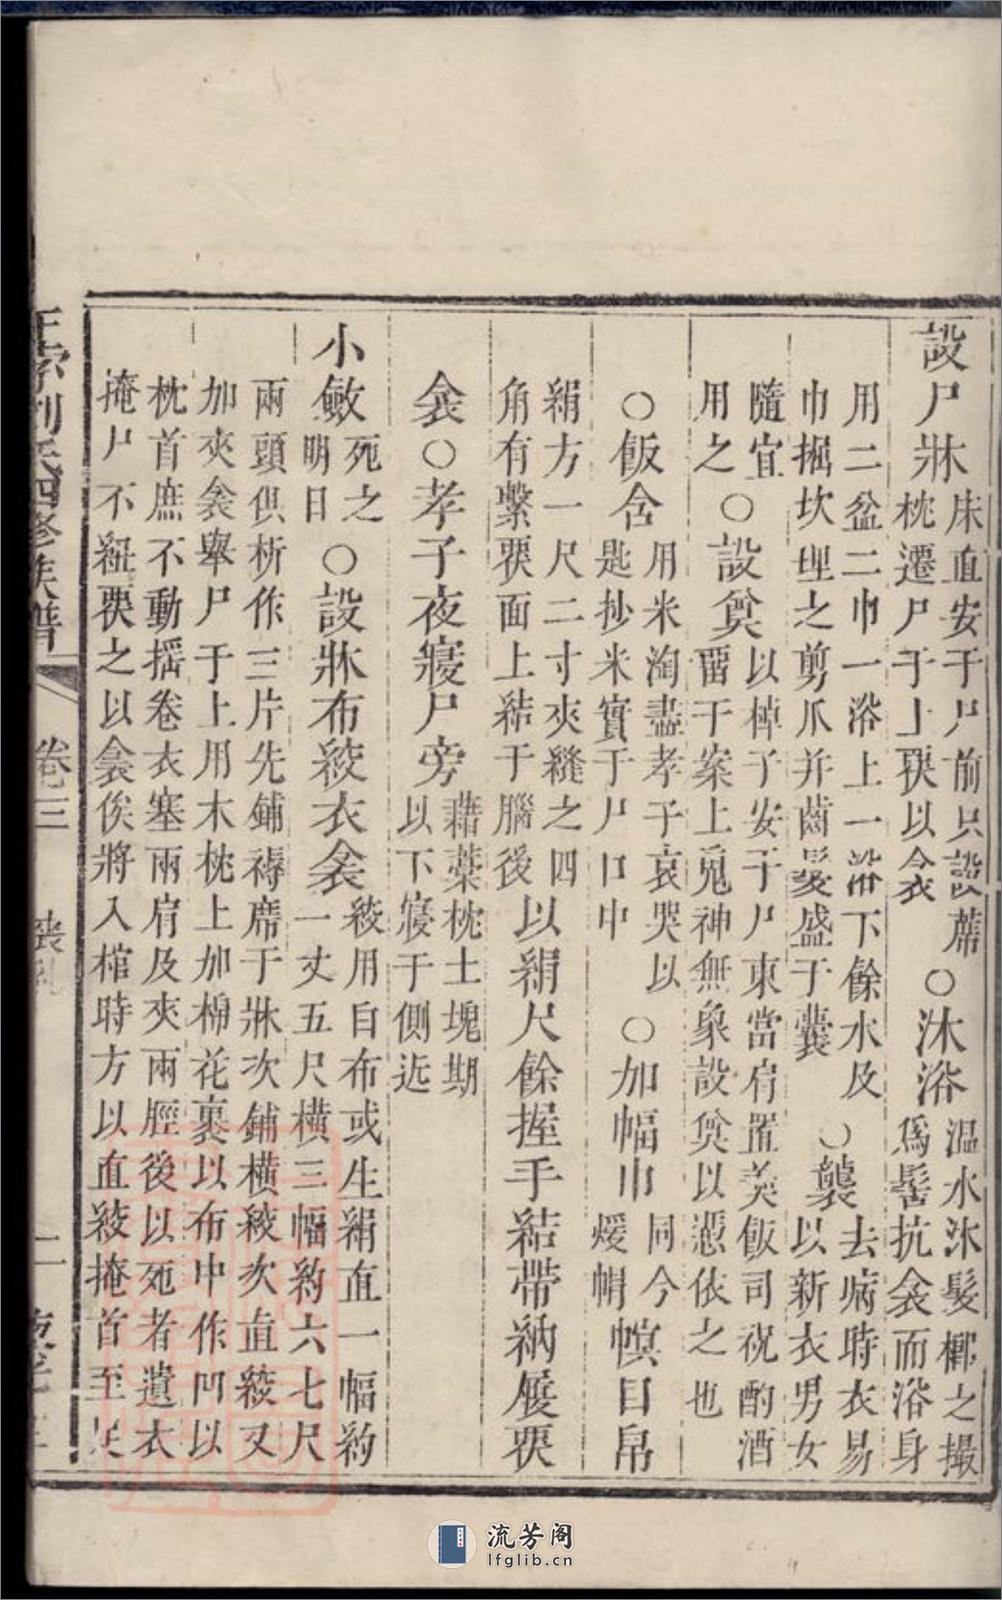 設尸牀床直安于尸前只設蓆枕遷尸于上㪍以衾○沐浴温水沐髮櫛之撮爲髻抗衾而浴身
用二盆二巾一浴上一浴下餘水及巾掘坎埋之剪爪并齒髮盛于囊○襲去病時衣易以新衣男女
隨宜用之○設奠以棹子安于尸東當肩置羙飯司祝酌酒畱于案上䰟神無象設奠以憑依之也
○飯含用米淘盡孝子哀哭以匙抄米實于尸口中○加幅巾同今煖帽幎目帛
絹方一尺二寸夾縫之四角有繫㪍面上結于腦後以絹尺餘握手結帶納屨㪍
衾○孝子夜寢尸旁藉藁枕土塊期以下寢于側近
小斂死之明日○設牀布綾衣衾綾用白布或生絹直一幅約一丈五尺横三幅約六七尺
兩頭俱析作三片先鋪褥蓆于牀次鋪横綾次直綾又加夾衾舉尸于上用木枕上加棉花裹以布中作凹以
枕首庶不動揺卷衣塞兩肩及夾兩脛後以死者遺衣掩尸不紐㪍之以衾俟將入棺時方以直綾掩首至足
四修族譜
卷三
喪
二
流芳阁
lfglib.cn